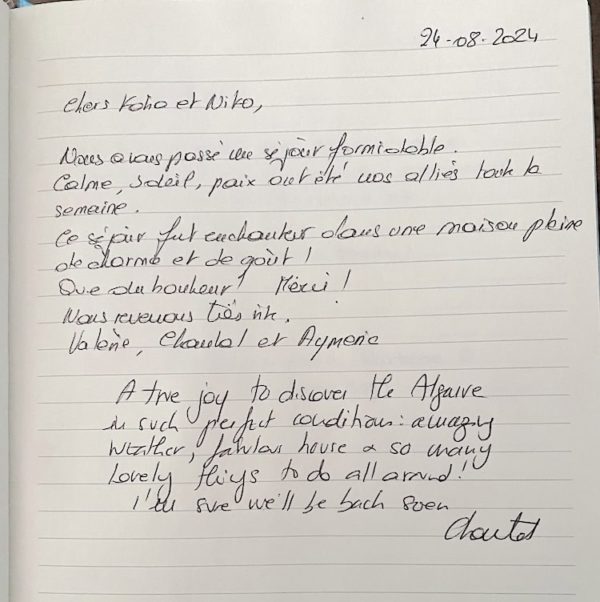 24-08-2024
Chers Katia et Niko,
Nous avons passé un séjour formidable.
Calme, soleil, paix ont été nos alliés toute la
semaine.
Ce séjour fut enchanteur dans une maison pleine
de charme et de goût !
Que du bonheur ! Merci !
Nous revenons très vite.
Valérie, Chantal et Aymeric
A true joy to discover the Algarve
in such perfect conditions: amazing
weather, fabulous house & so many
lovely things to do all around!
I'm sure we'll be back soon
Chantal